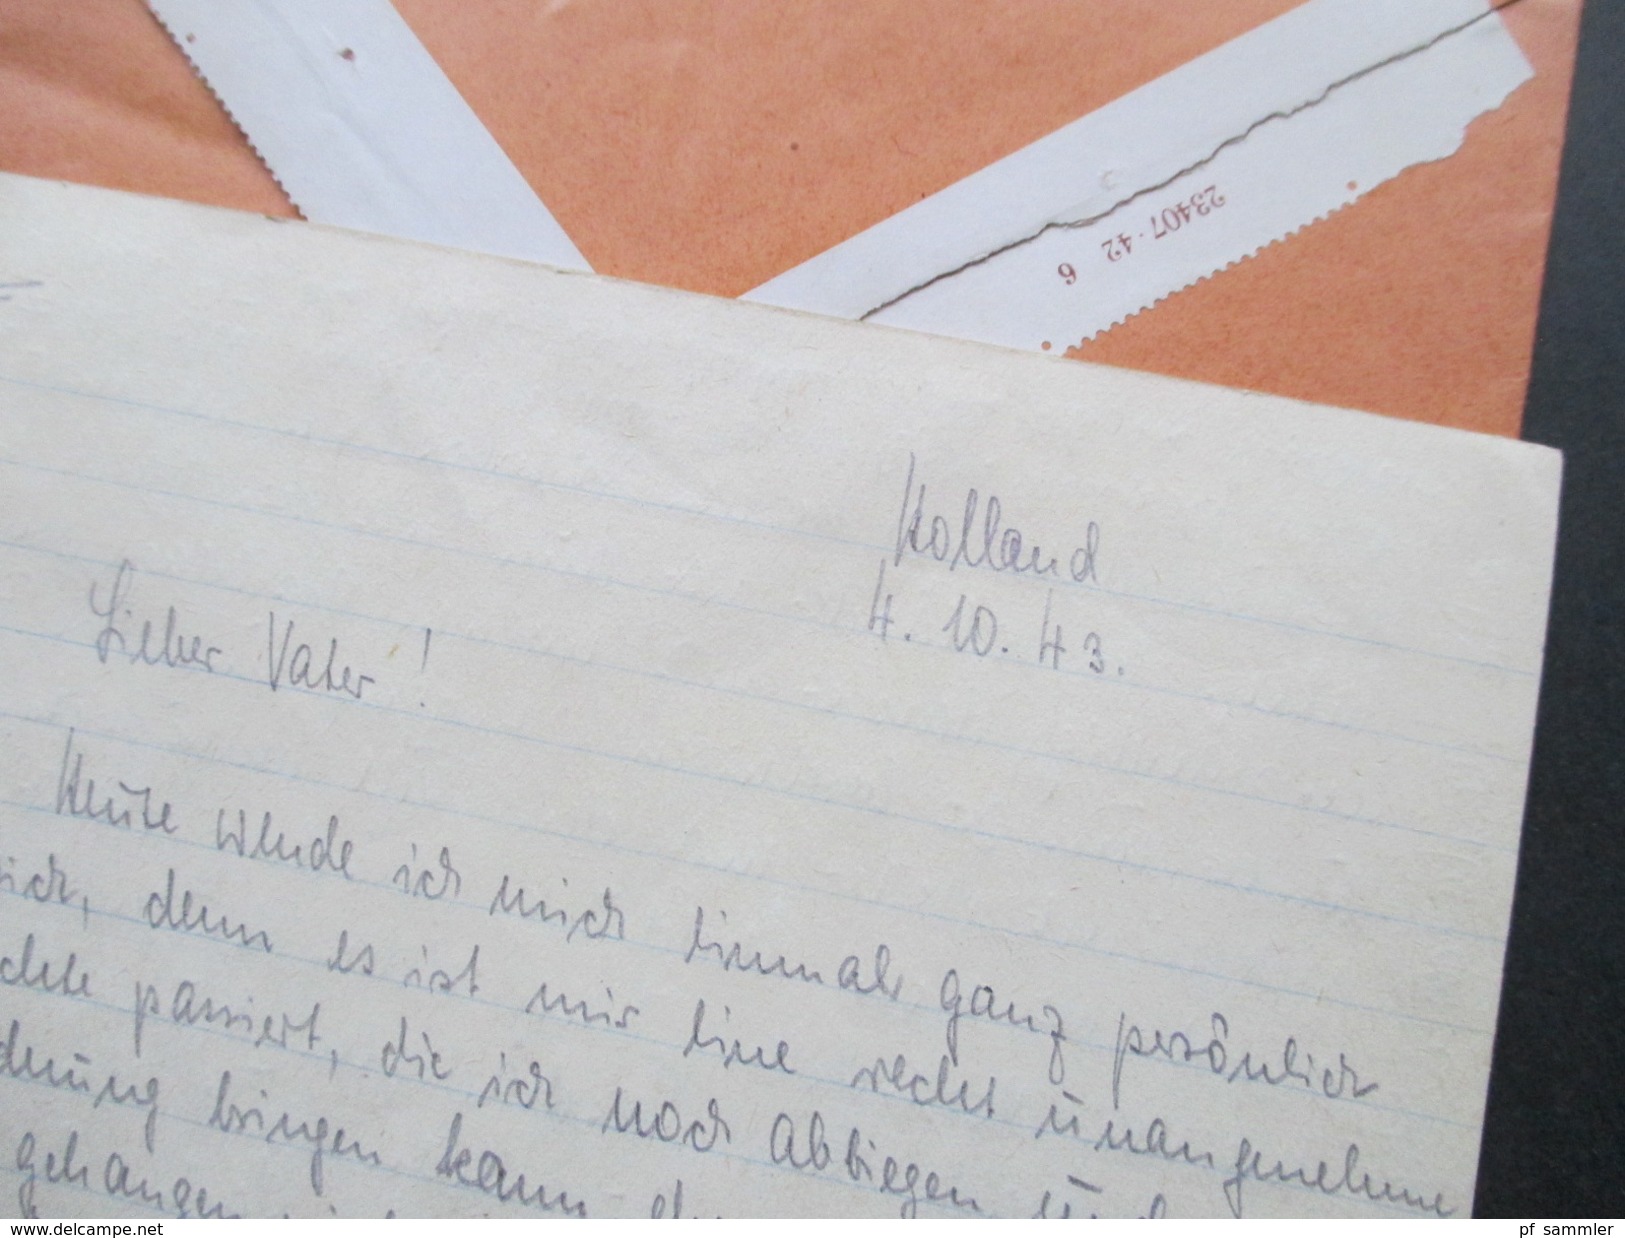 23407·42 6
Holland
4. 10. 43.
Lieber Vater!
Heute wende ich mich einmal ganz persönlich
denn es ist mir eine recht unangenehme
passiert, die ich noch abbiegen und
bringen kann
gehangen
www.delcampe.net
pf_sammler